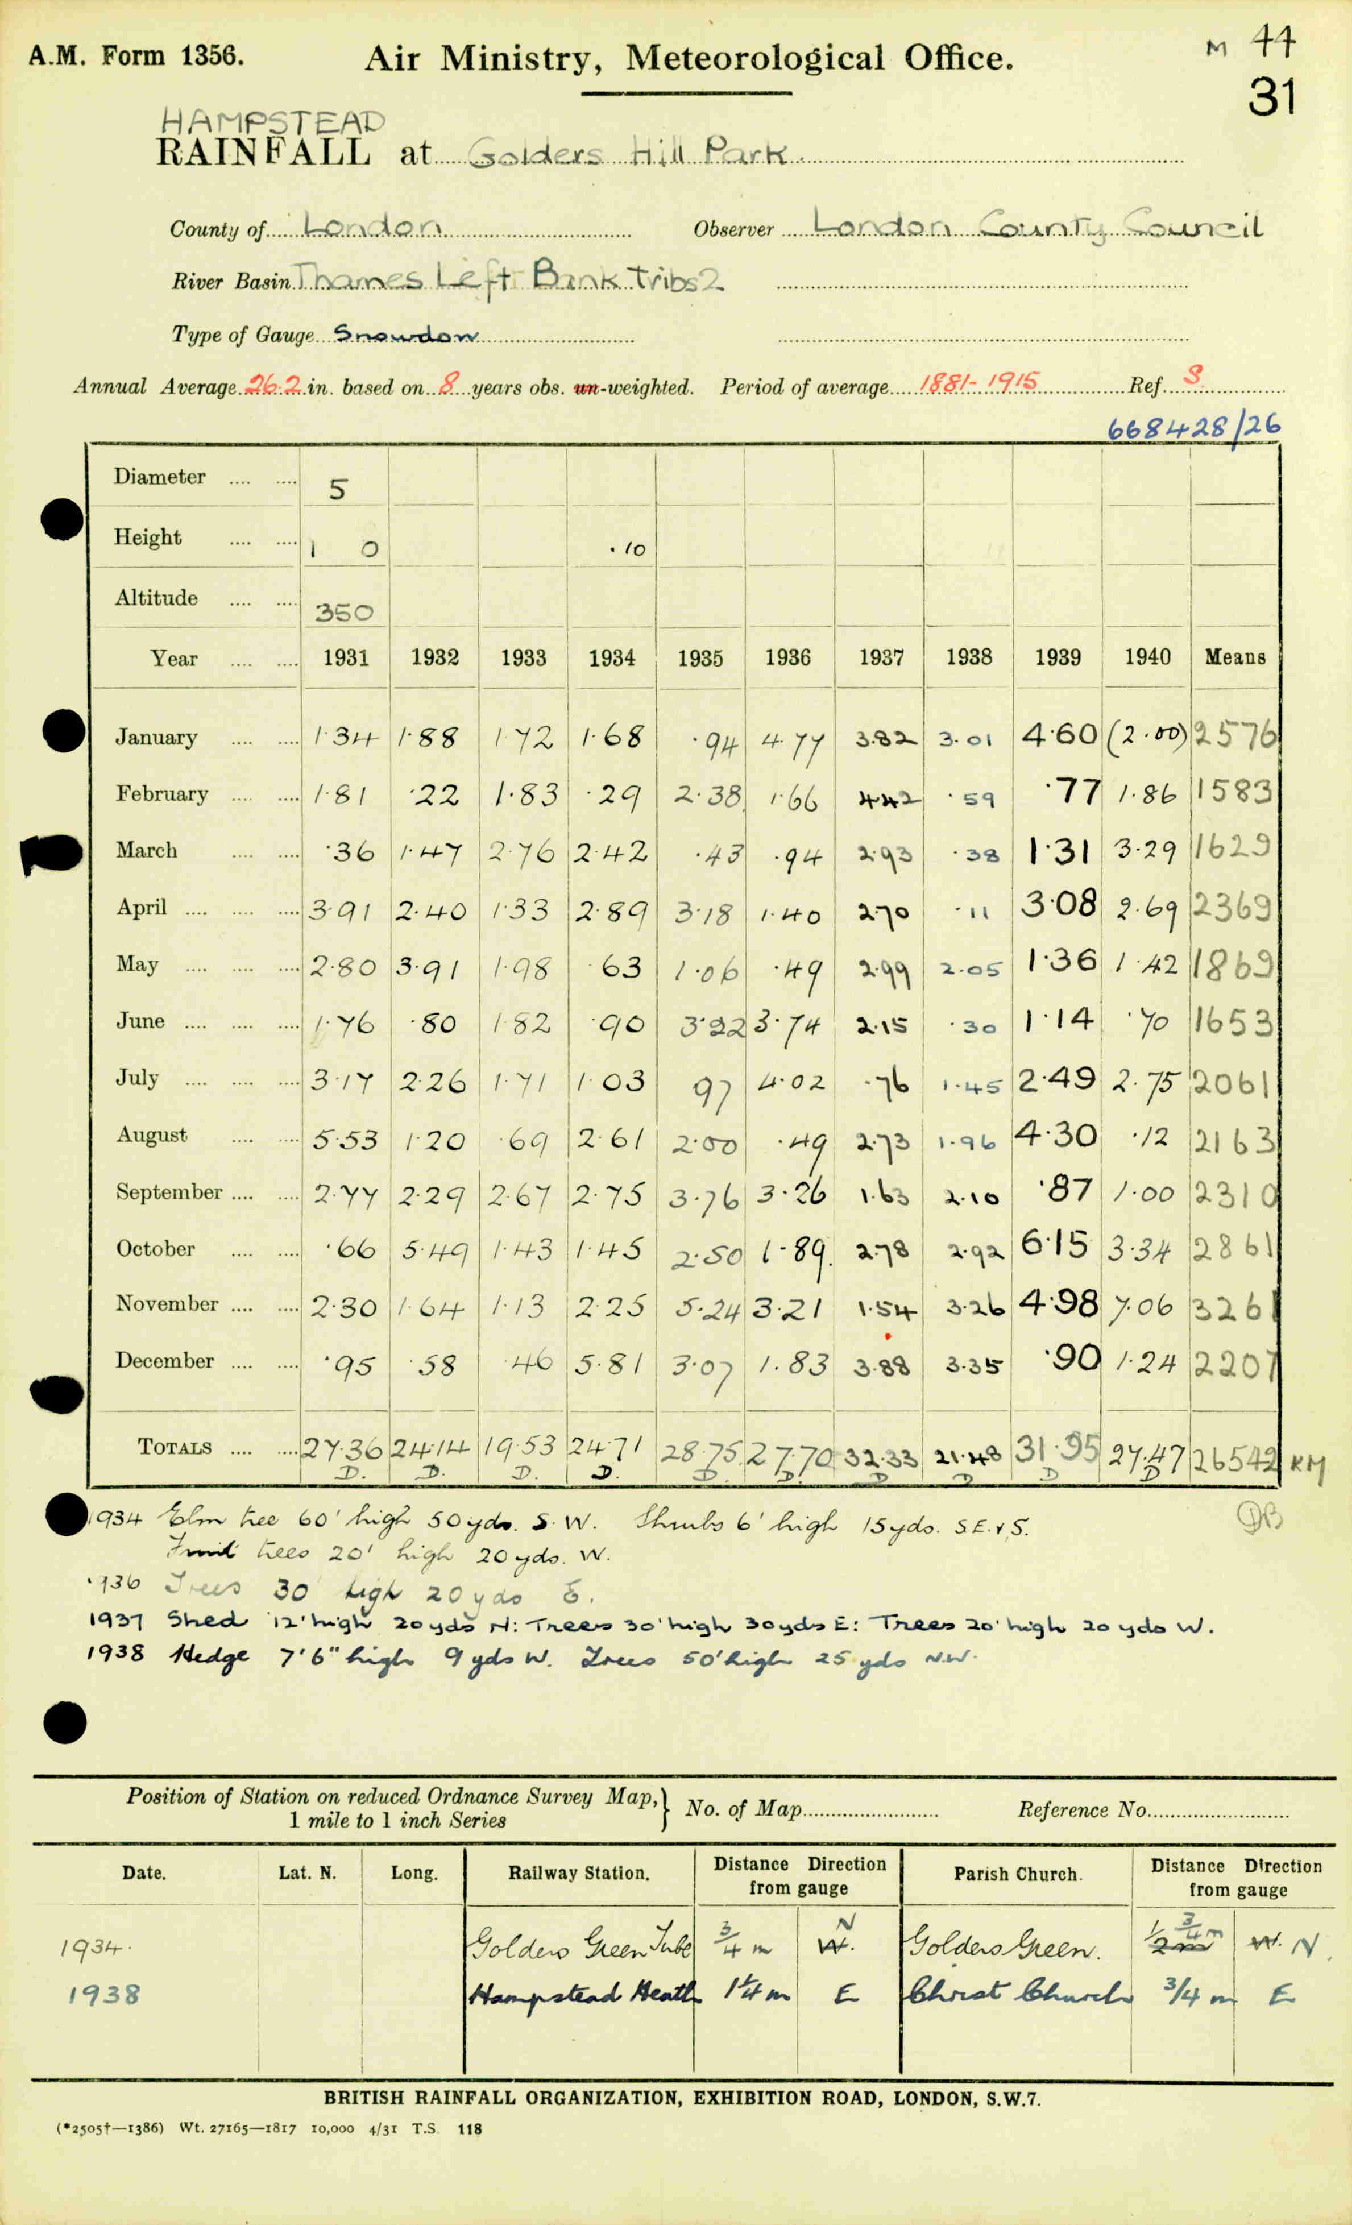 A.M. Form 1356. Air Ministry, Meteorological Office. M 44
31
HAMPSTEAD
RAINFALL at Golders Hill Park.
County of London Observer London County Council
River Basin Thames Left Bank Tribs 2
Type of Gauge Snowdon
Annual Average 26.2 in. based on 8 years obs. un-weighted. Period of average 1881-1915 Ref. S
668428/26
Diameter .... .... 5
Height .... .... 1 0 .10
Altitude .... .... 350
Year .... .... 1931 1932 1933 1934 1935 1936 1937 1938 1939 1940 Means
January .... .... 1.34 1.88 1.72 1.68 .94 4.77 3.82 3.01 4.60 (2.00) 2576
February .... .... 1.81 .22 1.83 .29 2.38 1.66 4.42 .59 .77 1.86 1583
March .... .... .36 1.47 2.76 2.42 .43 .94 2.93 .38 1.31 3.29 1629
April .... .... .... 3.91 2.40 1.33 2.89 3.18 1.40 2.70 .11 3.08 2.69 2369
May .... .... .... 2.80 3.91 1.98 .63 1.06 .49 2.99 2.05 1.36 1.42 1869
June .... .... .... 1.76 .80 1.82 .90 3.22 3.74 2.15 .30 1.14 .70 1653
July .... .... .... 3.17 2.26 1.71 1.03 97 4.02 .76 1.45 2.49 2.75 2061
August .... .... 5.53 1.20 .69 2.61 2.00 .49 2.73 1.96 4.30 .12 2163
September .... .... 2.77 2.29 2.67 2.75 3.76 3.26 1.63 2.10 .87 1.00 2310
October .... .... .66 5.49 1.43 1.45 2.50 1.89 2.78 2.92 6.15 3.34 2861
November .... .... 2.30 1.64 1.13 2.25 5.24 3.21 1.54 3.26 4.98 7.06 3261
December .... .... .95 .58 .46 5.81 3.07 1.83 3.88 3.35 .90 1.24 2207
TOTALS .... .... 27.36 24.14 19.53 24.71 28.75 27.70 32.33 21.48 31.95 27.47 26542 KM
D. D. D. D. D. D. D D D D
1934 Elm tree 60' high 50 yds. S.W. Shrubs 6' high 15 yds. S.E. & S. DB
Fruit trees 20' high 20 yds. W.
1936 Trees 30 high 20 yds E.
1937 Shed 12' high 20 yds N: Trees 30' high 30 yds E: Trees 20' high 20 yds W.
1938 Hedge 7'6" high 9 yds W. Trees 50' high 25 yds N.W.
Position of Station on reduced Ordnance Survey Map, } No. of Map Reference No.
1 mile to 1 inch Series
Date. Lat. N. Long. Railway Station. Distance Direction from gauge Parish Church. Distance Direction from gauge
1934. Golders Green Tube 3/4 m W. N Golders Green. 1/2 m 3/4 m W. N.
1938 Hampstead Heath 1 1/4 m E Christ Church 3/4 m E
BRITISH RAINFALL ORGANIZATION, EXHIBITION ROAD, LONDON, S.W.7.
(*2505†—1386) Wt. 27165—1817 10,000 4/31 T.S. 118